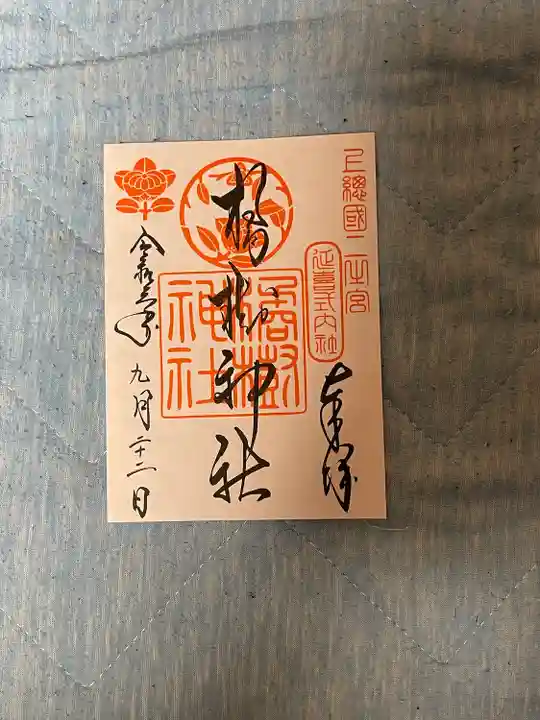 上總國二之宮
延喜式内社
奉拝
橘樹神社
橘樹神社
九月二十二日